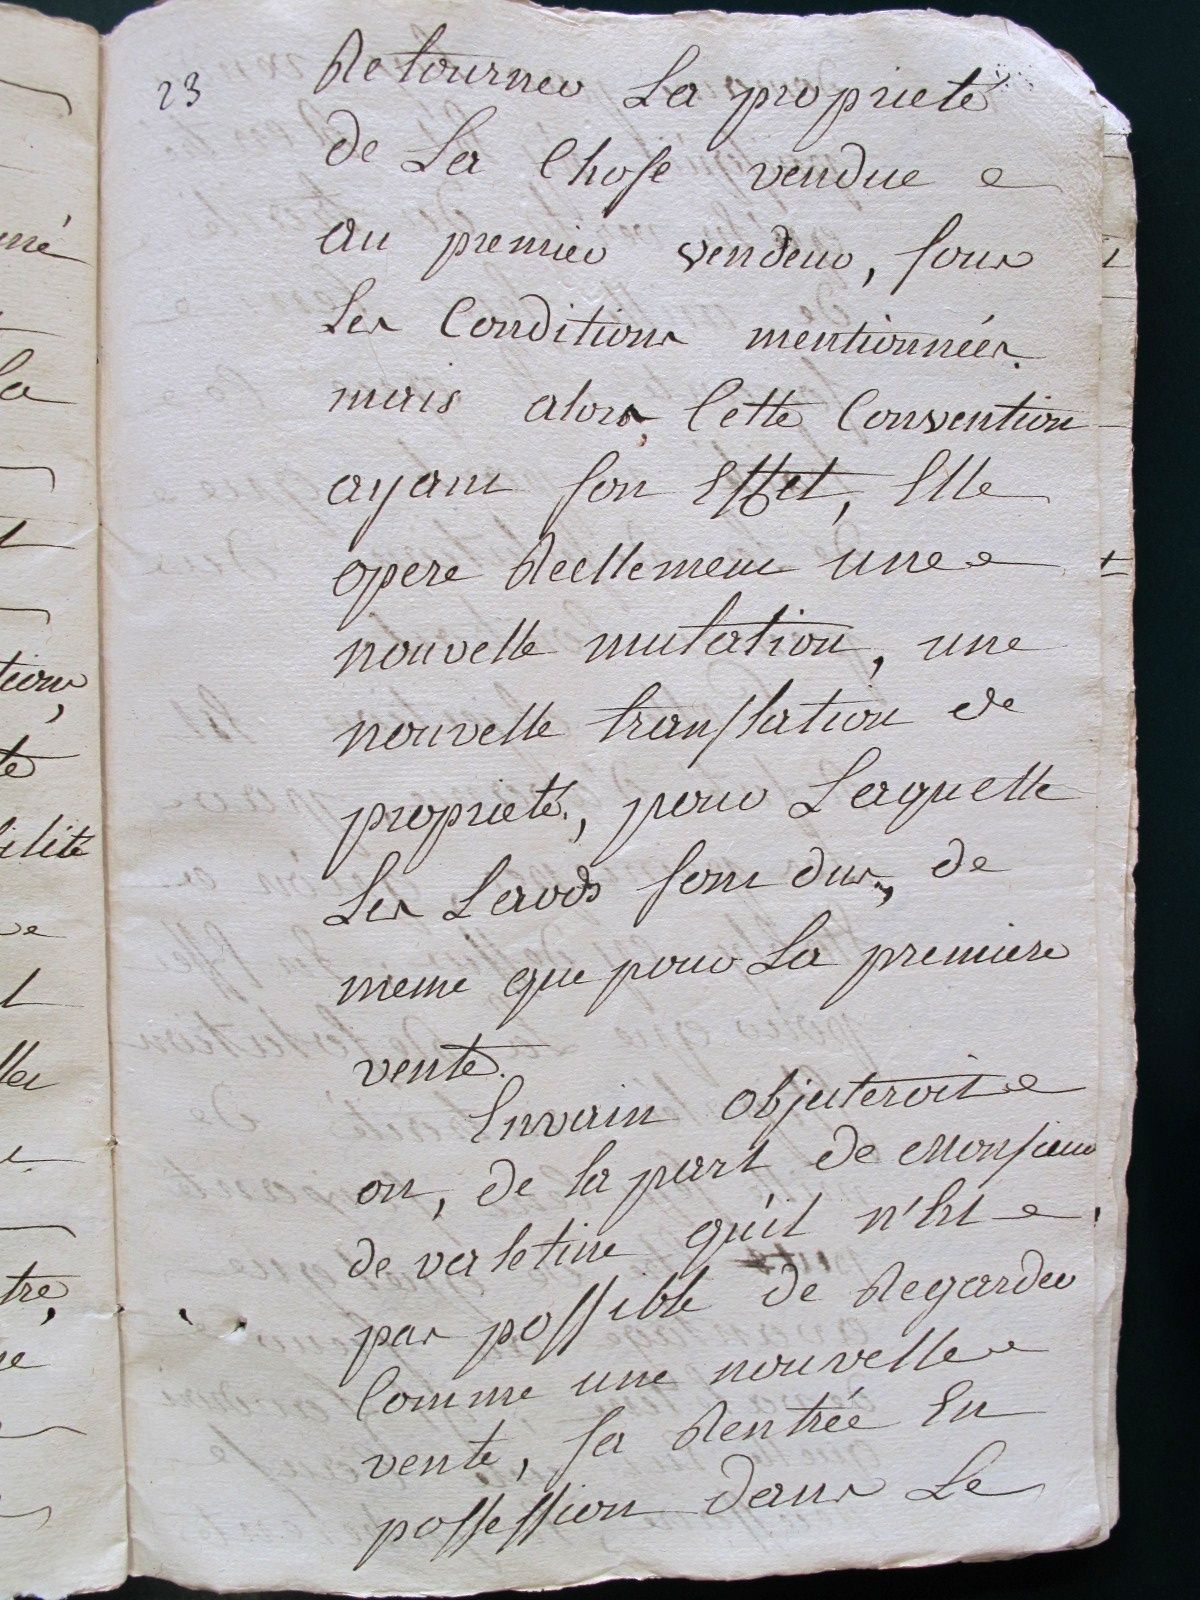 23
Retourner La proprieté
de La Chose vendue
au premier vendeur, sous
Les Conditions mentionnées.
mais alors Cette Convention
ayant son Effet, Elle
opere Reellement une
nouvelle mutation, une
nouvelle translation de
proprieté, pour Laquelle
Les Laods sont dus, de
meme que pour La premiere
vente.
Envain objecteroit
on, de la part de Monsieur
de valetine qu'il n'Est
pas possible de Regarder
Comme une nouvelle
vente, sa Rentrée En
possession dans Le